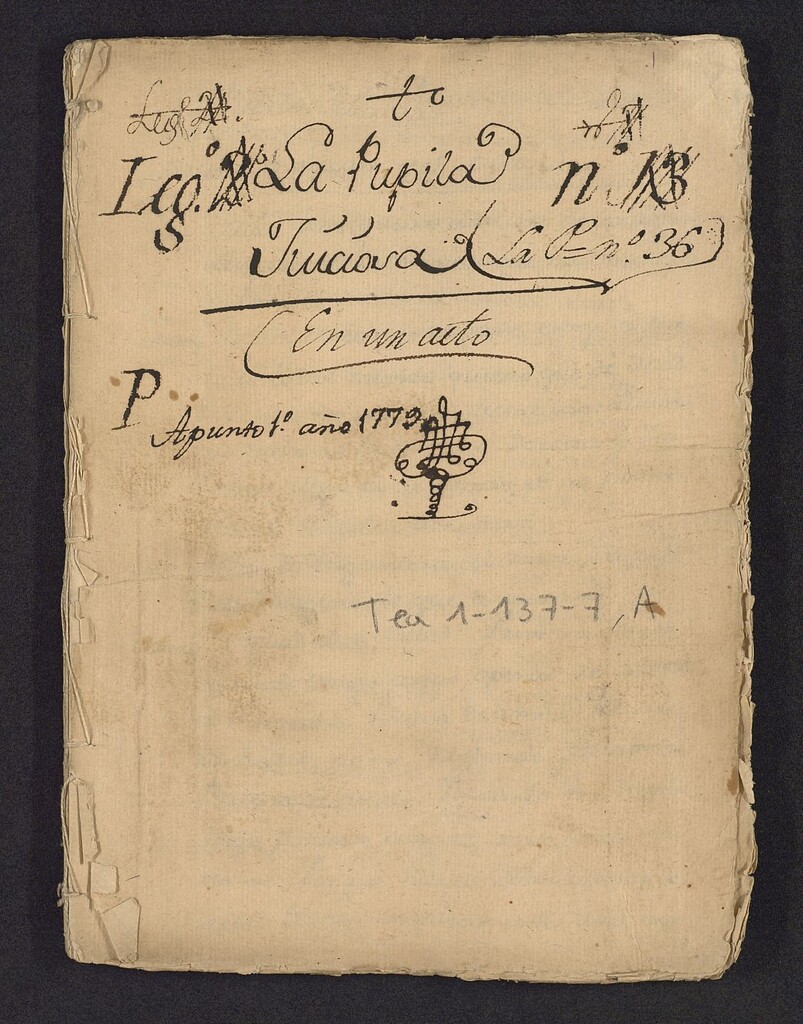 t o
Leg.º La Pupila nº 13
Juiciosa La P nº 36
En un acto
P
Apunto 1º año 1779
Tea 1-137-7, A